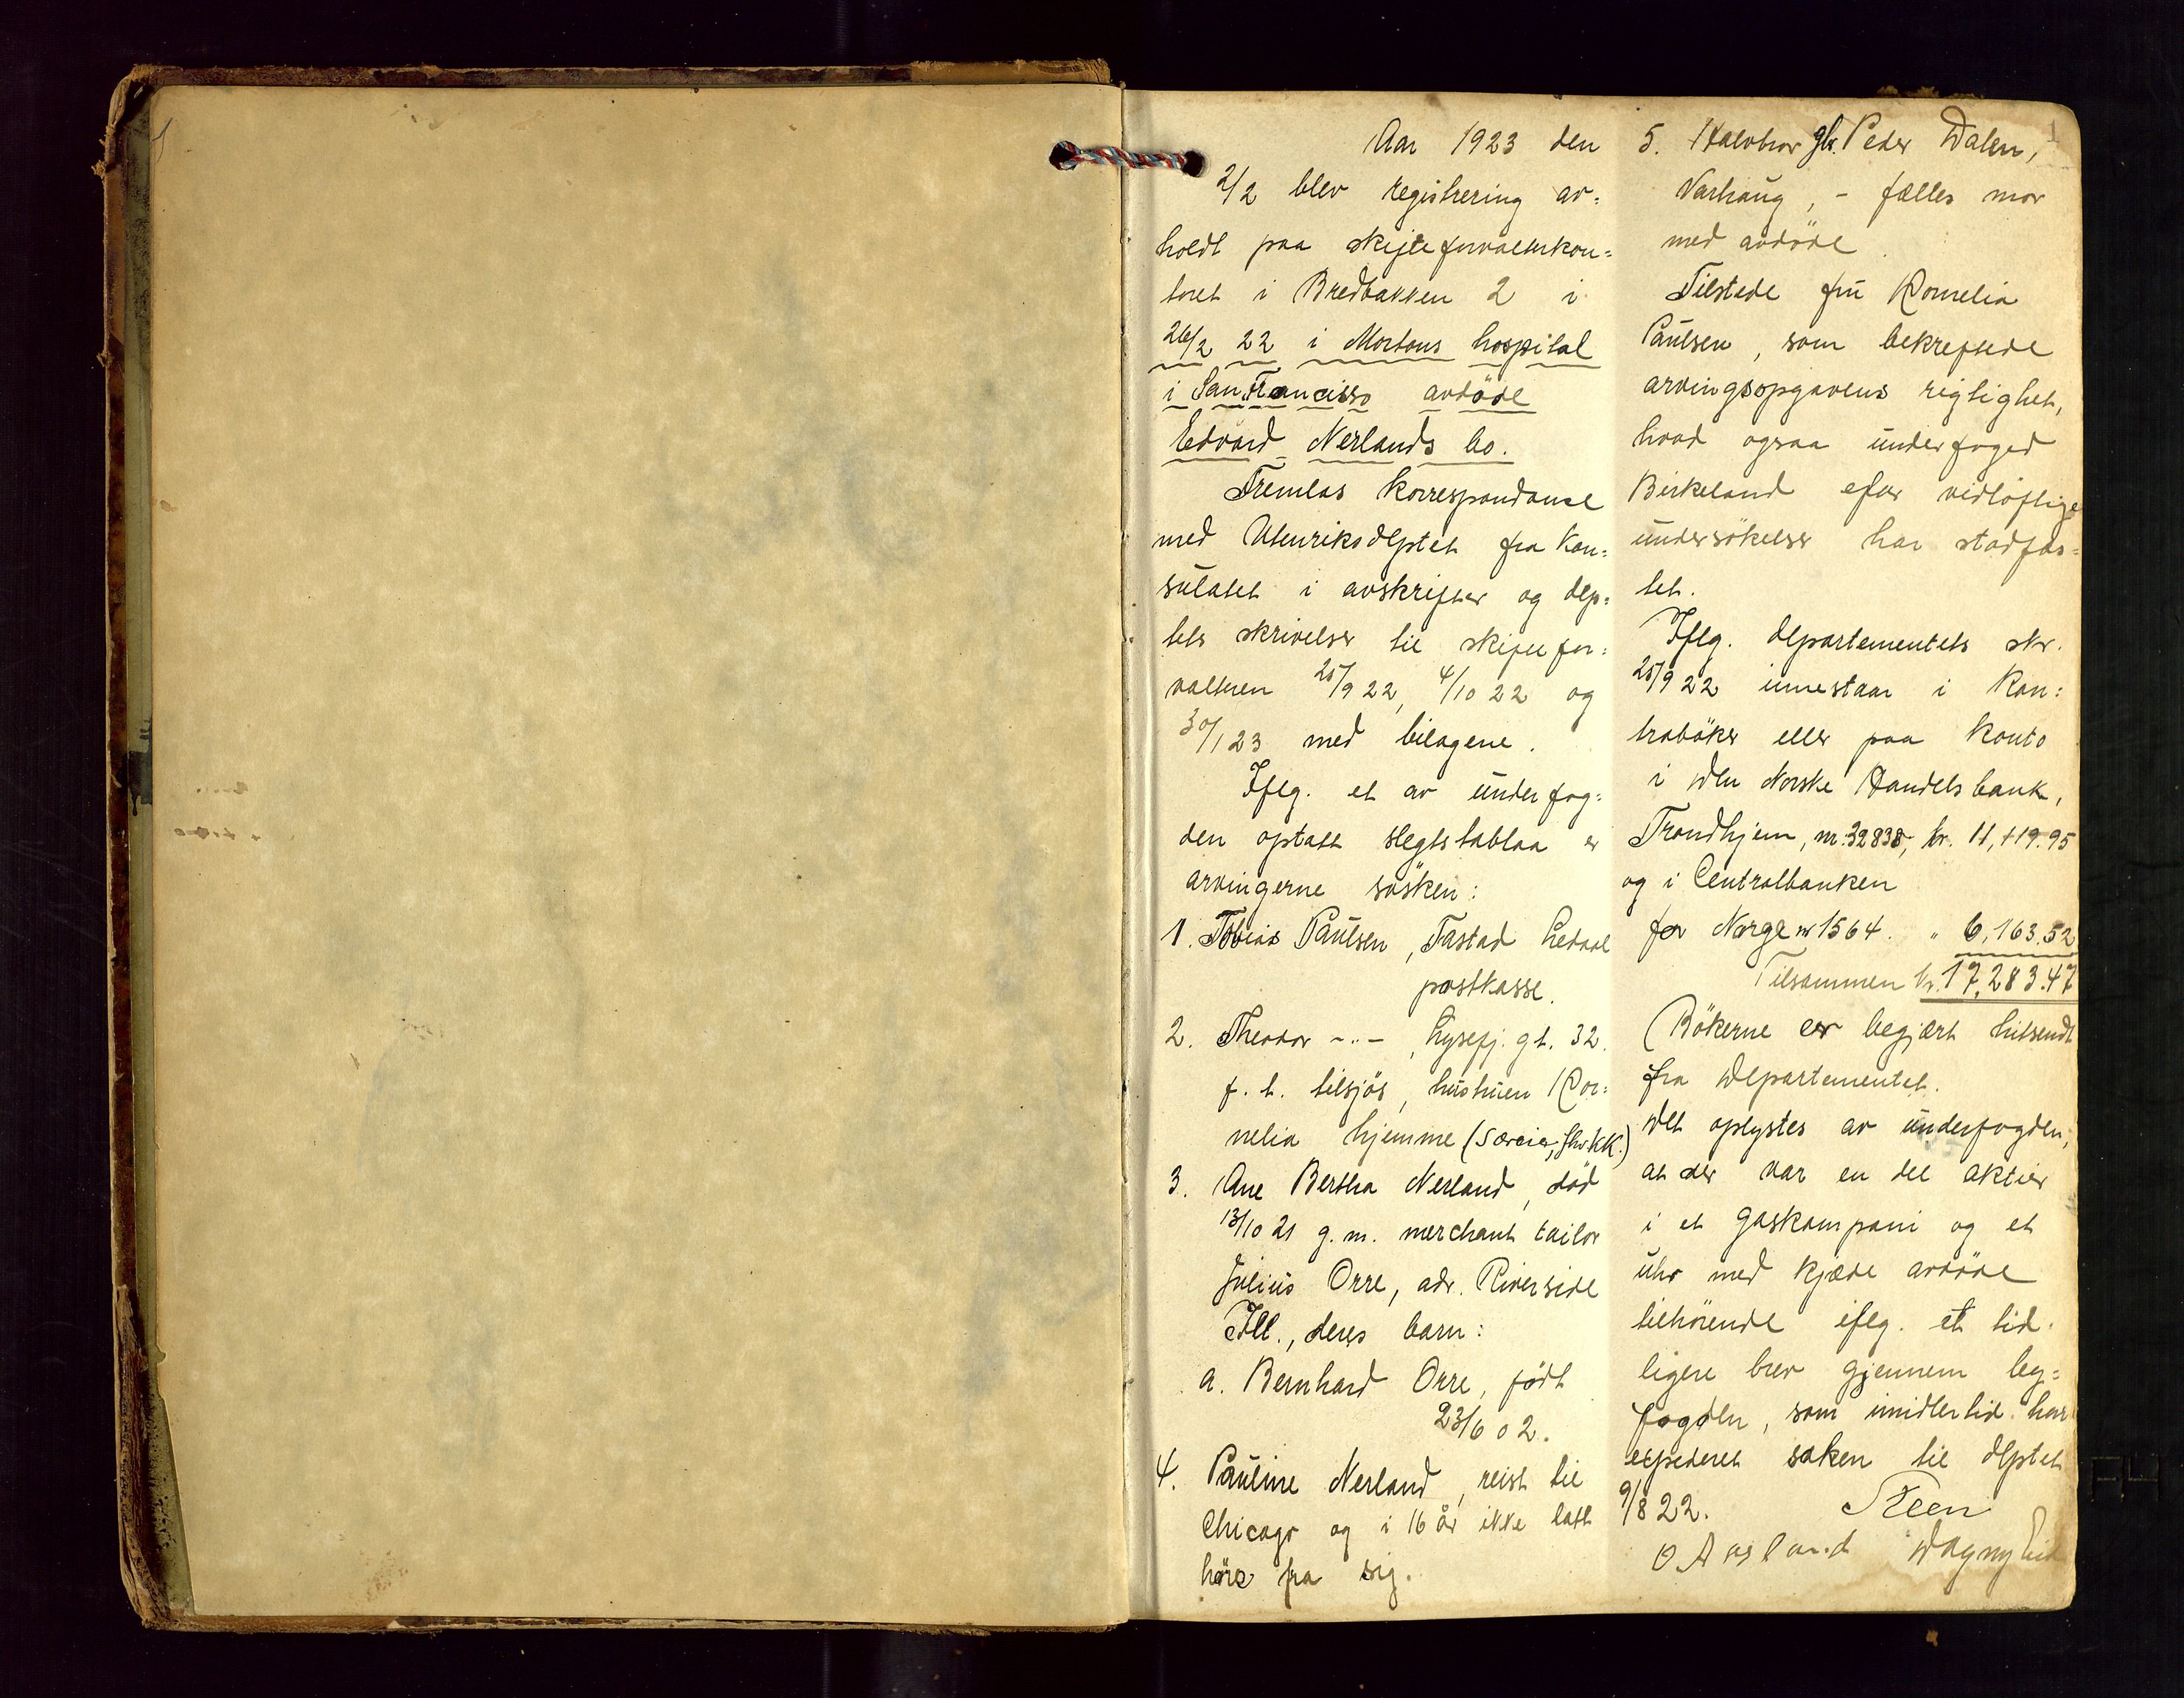 Aar 1923 den
2/2 blev registrering av=
holdt paa skifteforvalterkon=
toret i Bredbakken 2 i
26/2 22 i Mortons hospital
i San Francisko avdöde
Edvard Nerlands bo.
Fremlas korrespondanse
med Utenriksdeptet fra kon=
sulatet i avskrifter og dep=
tets skrivelser til skiftefor=
valteren 25/9 22, 4/10 22 og
30/1 23 med bilagene.
Iflg. et av underfog=
den optatt slegtstablaa er
arvingerne søsken:
1. Tobias Paulsen, Tastad Ledaal
postkasse.
2. Theodor -"-, Lysefj. gt. 32.
f. t. tilsjøs, hustruen Kor=
nelia hjemme (Særeie, fhv. KK.)
3. Ane Bertha Nerland, död
13/10 21 g. m. merchant tailor
Julius Orre, adr. Riverside
Ill., deres barn:
a. Bernhard Orre, födt
23/6 02.
4. Pauline Nerland, reist til
Chicago og i 16 år ikke latt
höre fra sig.
1
5. Halvbror Peder Dalen,
Varhaug, - fælles mor
med avdöde.
Tilstede fru Kornelia
Paulsen, som bekreftede
arvingsopgavens rigtighet,
hvad ogsaa underfoged
Birkeland efter vidløftige
undersökelser har stadfæs=
tet.
Iflg. departementets skr.
25/9 22 innestaar i kon=
trabøker eller paa konto
i Den Norske Handelsbank,
Trondhjem, nr. 32838, kr. 11,119.95
og i Centralbanken
for Norge nr 1564. " 6,163.52
Tilsammen kr. 17,283.47
(Bökerne er begjært hitsendt
fra Departementet.
Det oplystes av underfogden,
at der var en del aktier
i et gaskompani og et
uhr med kjæde avdöde
tilhörende iflg. et tid=
ligere brev gjennem by=
fogden, som imidlertid har
expederet saken til deptet
9/8 22. Steen
O Aasland Dagny